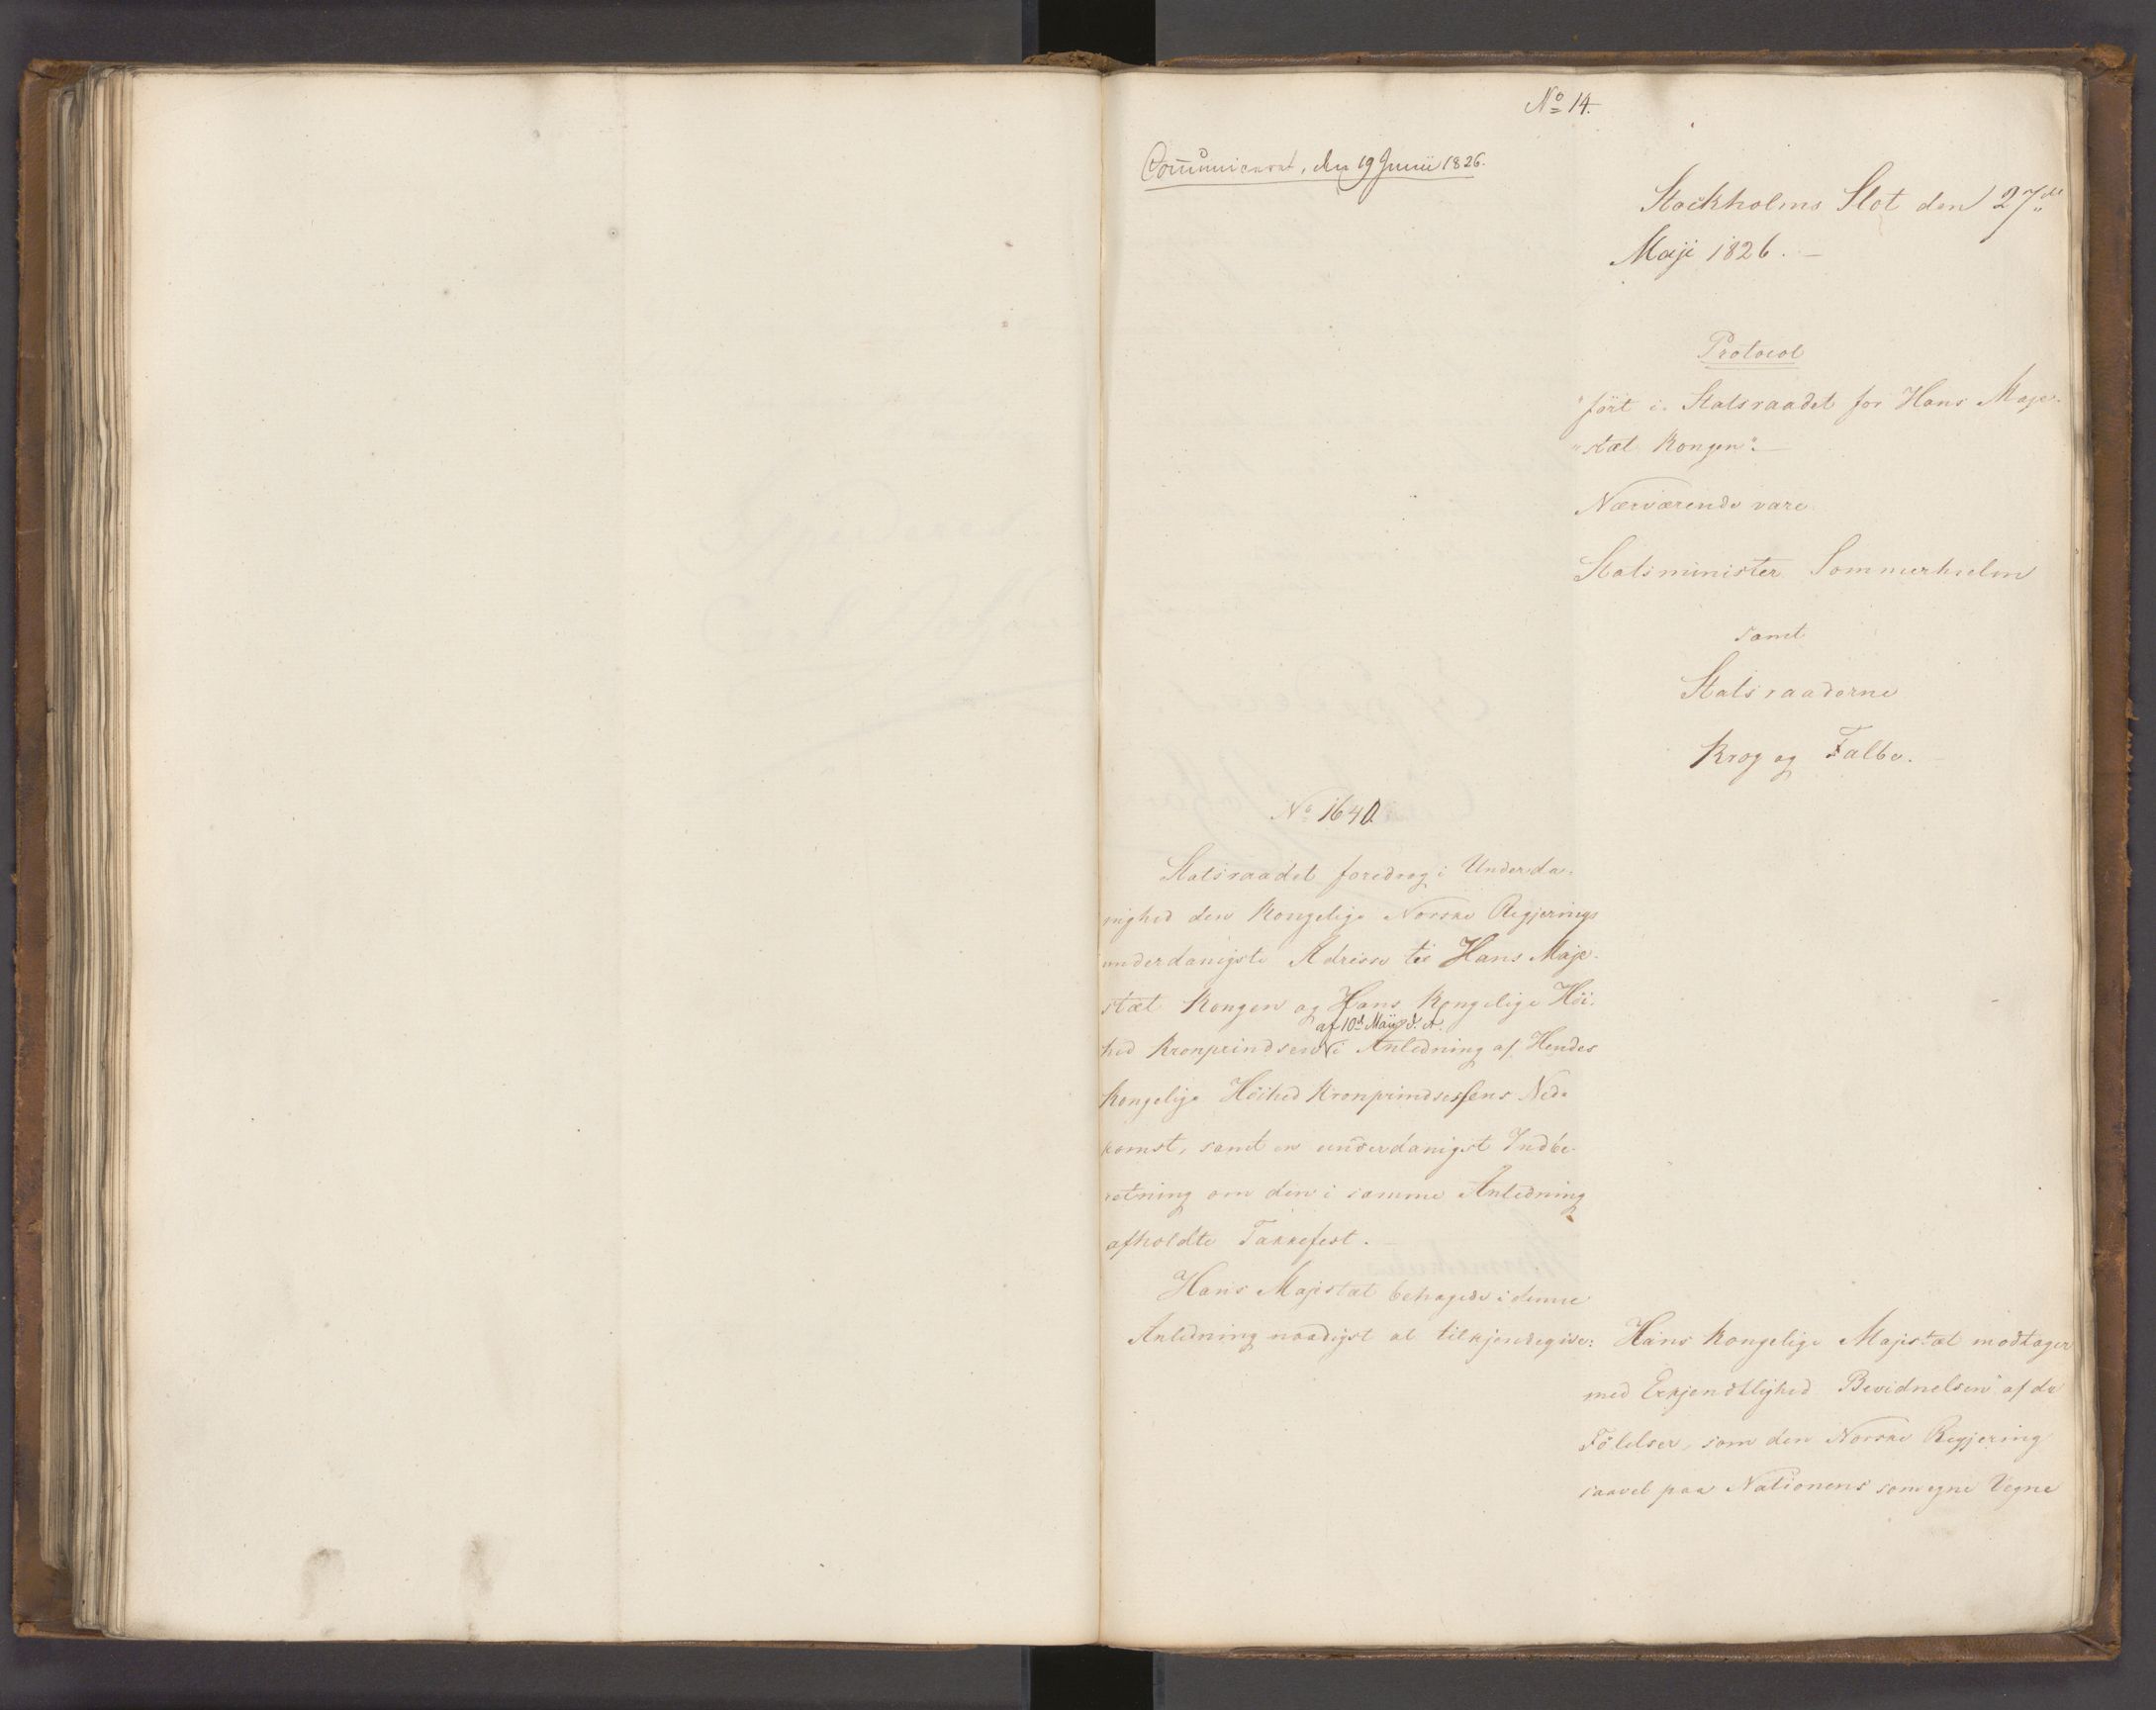 No 14.
Communicerat, den 19 Junii 1826.
Stockholms Slot den 27de
Maji 1826. —
Protocol
"fört i Statsraadet for Hans Maje-
"stæt Kongen". —
Nærværende vare
Statsminister Sommerhielm
samt
Statsraaderne
Krog og Falbe.
No 1640.
Statsraadet foredrog i Underda-
nighed den Kongelige Norske Regjerings
underdanigste Adresse til Hans Maje-
stæt Kongen og Hans Kongelige Höi-
af 10d Maij d. A.
hed Kronprindsen i Anledning af Hendes
Kongelige Höihed Kronprindsessens Ned-
komst, samt en underdanigst Indbe-
retning om den i samme Anledning
afholdte Takkefest. —
Hans Majestæt behagede i denne
Anledning naadigst at tilkjendegive:
Hans Kongelige Majestæt modtager
med Erkjendtlighed Bevidnelsen af de
Fölelser, som den Norske Regjering
saavel paa Nationens som egne Vegne